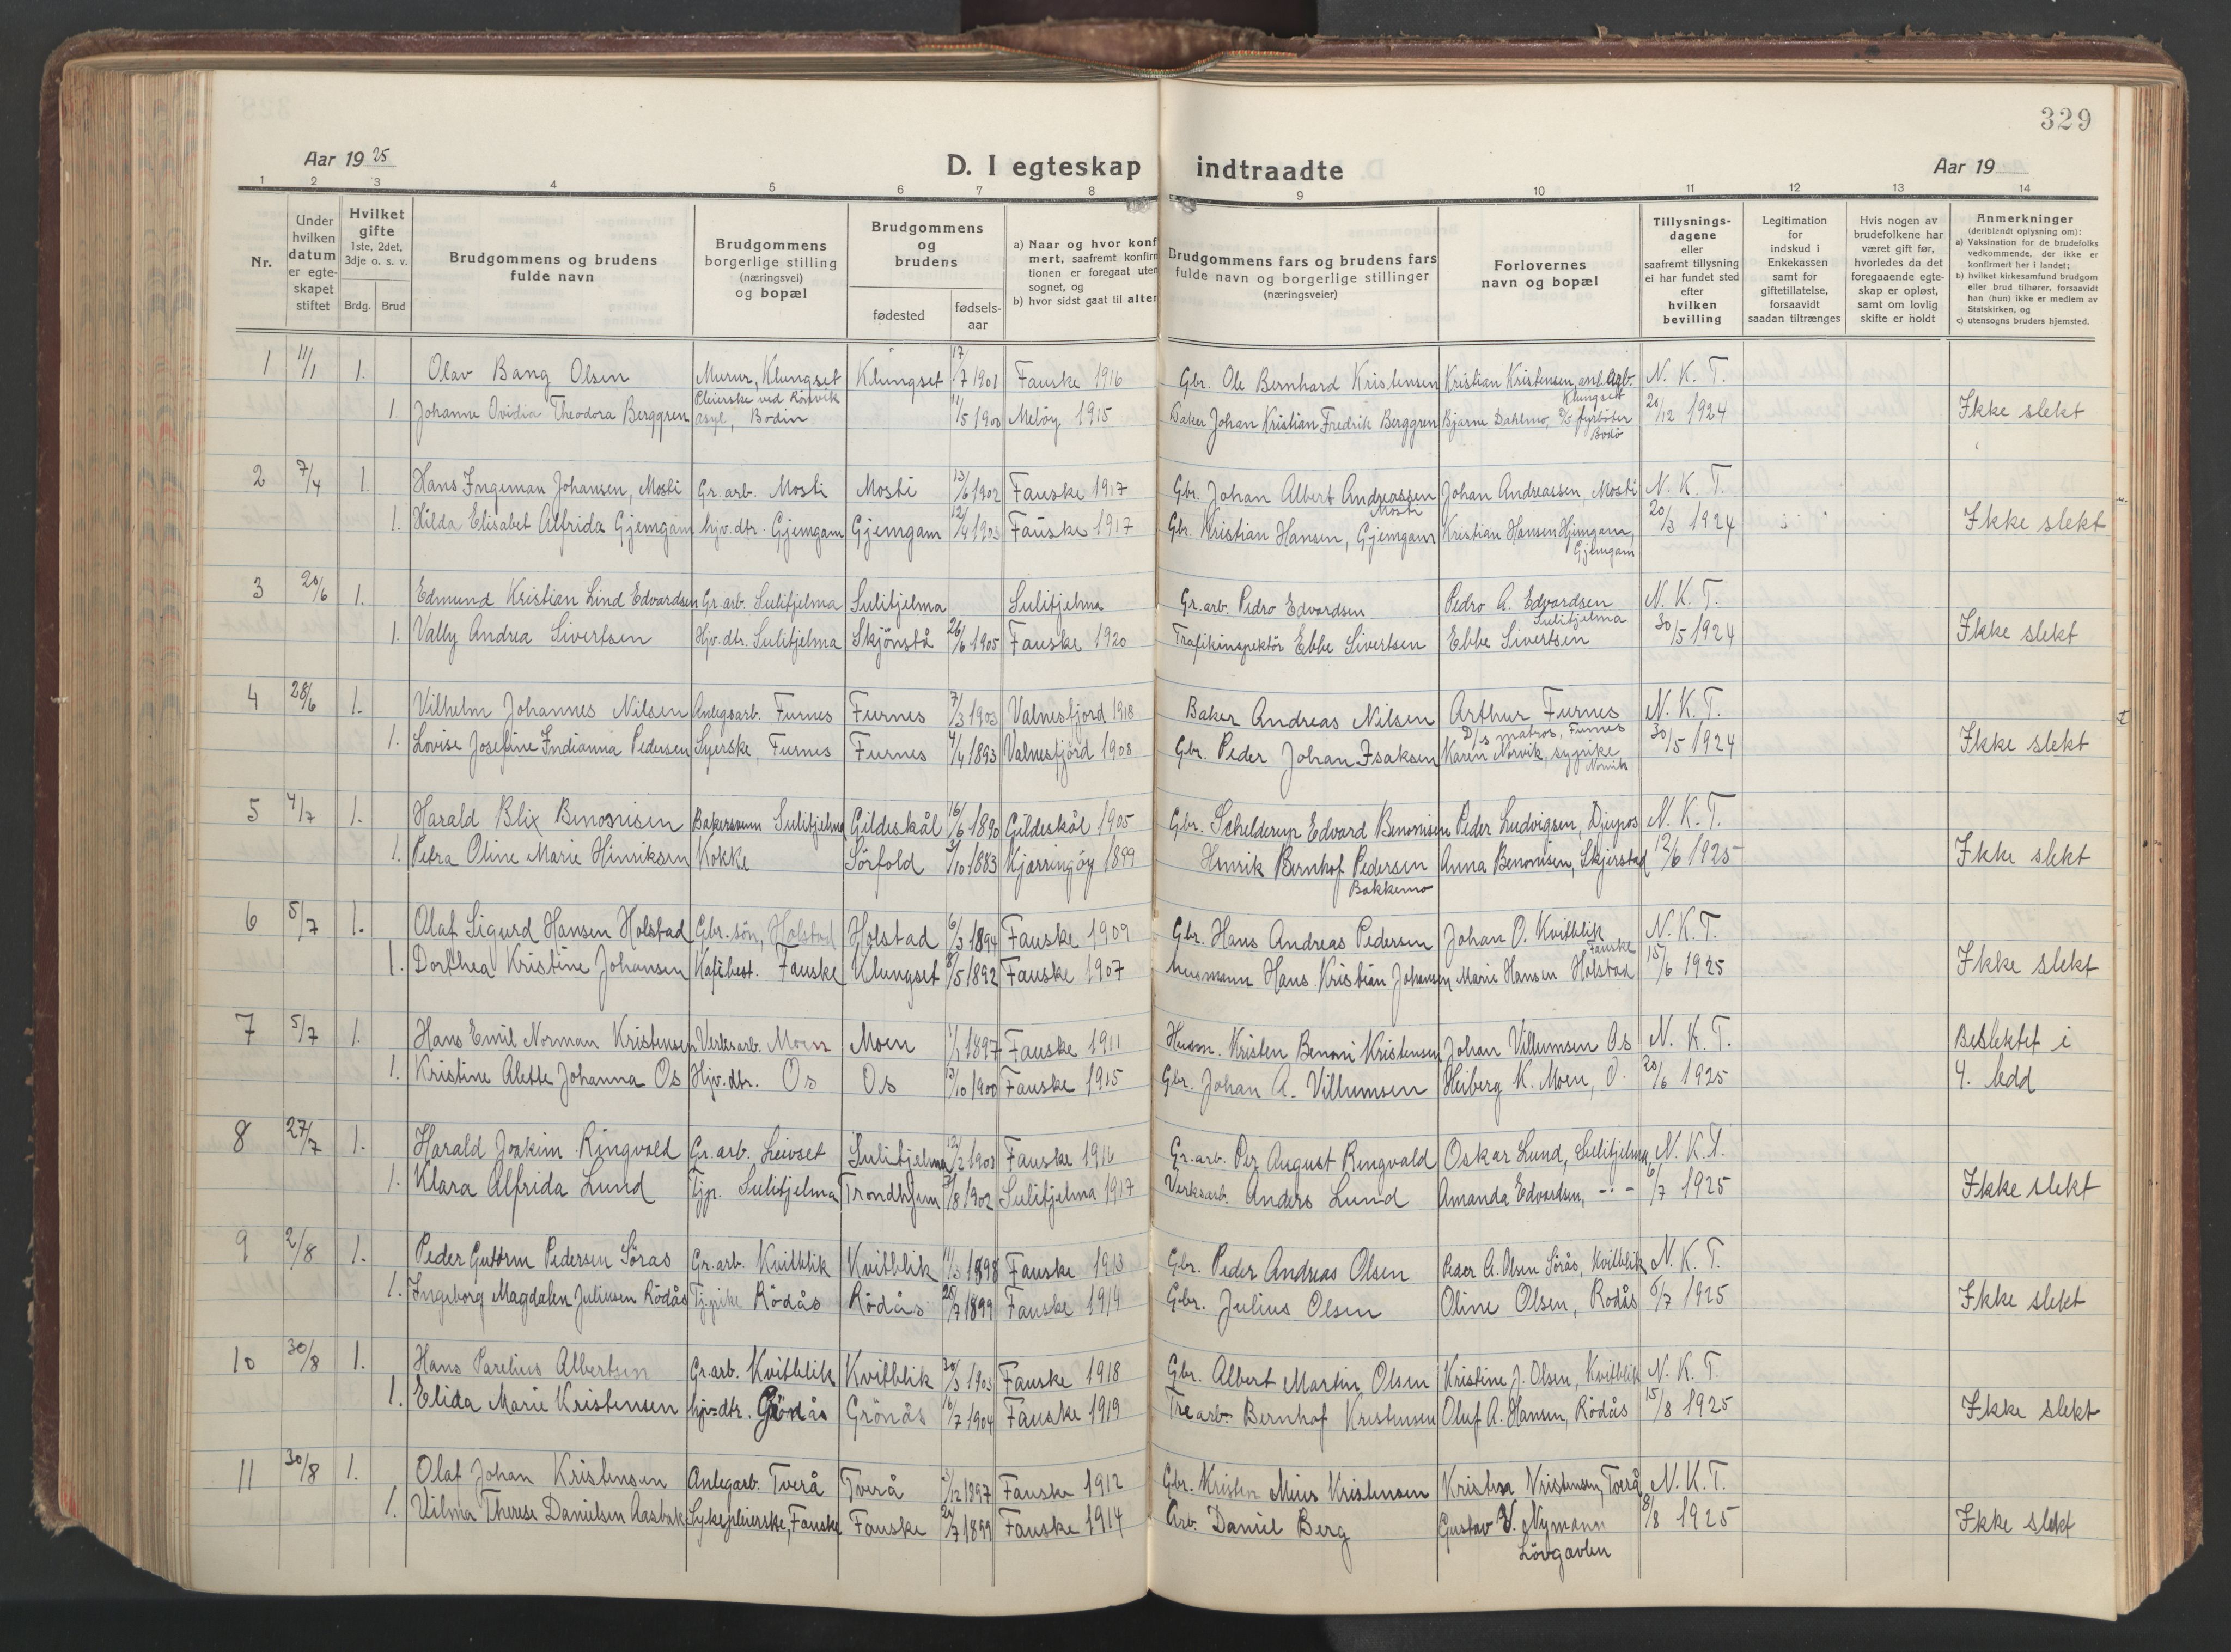 329
Aar 19 25
D. I egteskap indtraadte
Aar 19
1 2 3 4 5 6 7 8 9 10 11 12 13 14
Nr.
Under hvilken datum er egteskapet stiftet
Hvilket gifte 1ste, 2det, 3dje o. s. v.
Brdg. Brud
Brudgommens og brudens fulde navn
Brudgommens borgerlige stilling (næringsvei) og bopæl
Brudgommens og brudens
fødested
fødselsaar
a) Naar og hvor konf
mert, saafremt konfirm
tionen er foregaat uten
sognet, og
b) hvor sidst gaat til alter
Brudgommens fars og brudens fars fulde navn og borgerlige stillinger (næringsveier)
Forlovernes navn og bopæl
Tillysningsdagene eller saafremt tillysning ei har fundet sted efter hvilken bevilling
Legitimation for indskud i Enkekassen samt for giftetillatelse, forsaavidt saadan tiltrænges
Hvis nogen av brudefolkene har været gift før, hvorledes da det foregaaende egteskap er opløst, samt om lovlig skifte er holdt
Anmerkninger
(deriblandt oplysning om):
a) Vaksination for de brudefolks vedkommende, der ikke er konfirmert her i landet;
b) hvilket kirkesamfund brudgom eller brud tilhører, forsaavidt han (hun) ikke er medlem av Statskirken, og
c) utensogns bruders hjemsted.
1 11/1 1. Olav Bang Olsen Murer, Klungset Klungset 17/7 1901 Fauske 1916 Gbr. Ole Bernhard Kristensen Kristian Kristensen, Klungset N. K. T.
1 Johanne Ovidia Theodora Berggren Pleierske ved Rönvik asyl, Bodin 11/5 1900 Melöy 1915 Baker Johan Kristian Fredrik Berggren Bjarne Dahlmo, fyrböter Bodö 20/12 1924 Ikke slekt
2 7/4 1. Hans Ingeman Johansen, Mosti Gr. arb. Mosti Mosti 13/6 1902 Fauske 1917 Gbr. Johan Albert Andreassen Mosti Johan Andreassen, Mosti N. K. T.
1. Hilda Elisabet Alfrida Gjemgam hjv. dtr. Gjemgam Gjemgam 12/4 1903 Fauske 1917 Gbr. Kristian Hansen, Gjemgam Kristian Hansen Hjemgam, Gjemgam 20/3 1924 Ikke slekt
3 20/6 1. Edmund Kristian Lind Edvardsen Gr. arb. Sulitjelma Sulitjelma Sulitjelma Gr. arb. Pedro Edvardsen Pedro A. Edvardsen Sulitjelma N. K. T.
1. Vally Andrea Sivertsen Hjv. dtr. Sulitjelma Skjönstå 26/6 1905 Fauske 1920 Trafikinspektör Ebbe Sivertsen Ebbe Sivertsen 30/5 1924 Ikke slekt
4 28/6 1. Vilhelm Johannes Nilsen Anlegsarb. Furnes Furnes 7/3 1903 Valnesfjord 1918 Baker Andreas Nilsen Arthur Furnes D/s matros, Furnes N. K. T.
1. Lovise Josefine Indianna Pedersen Syerske, Furnes Furnes 4/4 1893 Valnesfjord 1908 Gbr. Peder Johan Isaksen Karen Norvik, sypike Norvik 30/5 1924 Ikke slekt
5 4/7 1. Harald Blix Benonisen Bakersvenn Sulitjelma Gildeskål 16/6 1890 Gildeskål 1905 Gbr. Schelderup Edvard Benonisen Peder Ludvigsen, Djupos N. K. T.
1. Petra Oline Marie Hinriksen Kokke Sörfold /10 1883 Kjerringöy 1899 Henrik Bernhof Pedersen Bakkemo Anna Benonisen, Skjerstad 12/6 1925 Ikke slekt
6 5/7 1. Olaf Sigurd Hansen Holstad Gbr. sön, Holstad Holstad 6/3 1894 Fauske 1909 Gbr. Hans Andreas Pedersen Johan O. Kvitblik Fauske N. K. T.
1. Dorthea Kristine Johansen Kafébest. Fauske Klungset 8/5 1892 Fauske 1907 Husmann Hans Kristian Johansen Marie Hansen Holstad 15/6 1925 Ikke slekt
7 5/7 1. Hans Emil Norman Kristensen Verksarb. Moen Moen 1/1 1897 Fauske 1911 Husm. Kristen Benoni Kristensen Johan Villumsen Os N. K. T. Beslektet i
1. Kristine Alette Johanna Os Hjv. dtr. Os Os 13/10 1900 Fauske 1915 Gbr. Johan A. Villumsen Heiberg K. Moen, O. 20/6 1925 4. ledd
8 27/7 1. Harald Joakim Ringvold Gr. arb. Leivset Sulitjelma 12/2 1903 Fauske 1916 Gr. arb. Per August Ringvald Oskar Lund, Sulitjelma N. K. T.
1. Klara Alfrida Lund Tjp. Sulitjelma Trondhjem /8 1902 Sulitjelma 1917 Verksarb. Anders Lund Amanda Edvardsen, -"- 6/7 1925 Ikke slekt
9 2/8 1. Peder Guttorm Pedersen Söras Gr. arb. Kvitblik Kvitblik 11/3 1898 Fauske 1913 Gbr. Peder Andreas Olsen Peder A. Olsen Sörås, Kvitblik N. K. T.
1. Ingeborg Magdalen Juliusen Rödås Tj. pike Rödås Rödås 28/7 1899 Fauske 1914 Gbr. Julius Olsen Oline Olsen, Rödås 6/7 1925 Ikke slekt
10 30/8 1. Hans Parelius Albertsen Gr. arb. Kvitblik Kvitblik 30/3 1903 Fauske 1918 Gbr. Albert Martin Olsen Kristine J. Olsen, Kvitblik N. K. T.
1. Elida Marie Kristensen hjv. dtr. Grönås Grönås 16/7 1904 Fauske 1919 Tre arb. Bernhof Kristensen Oluf A. Hansen, Rödås 15/8 1925 Ikke slekt
11 30/8 1. Olaf Johan Kristensen Anlegarb. Tverå Tverå /12 1897 Fauske 1912 Gbr. Kristen Kristensen Kristensen, Tverå N. K. T.
1. Vilma Therese Danielsen Aasbakk Sykepleierske, Fauske Fauske 20/7 1899 Fauske 1914 Arb. Daniel Berg Gustav V. Nymann Lövgavlen 8/8 1925 Ikke slekt